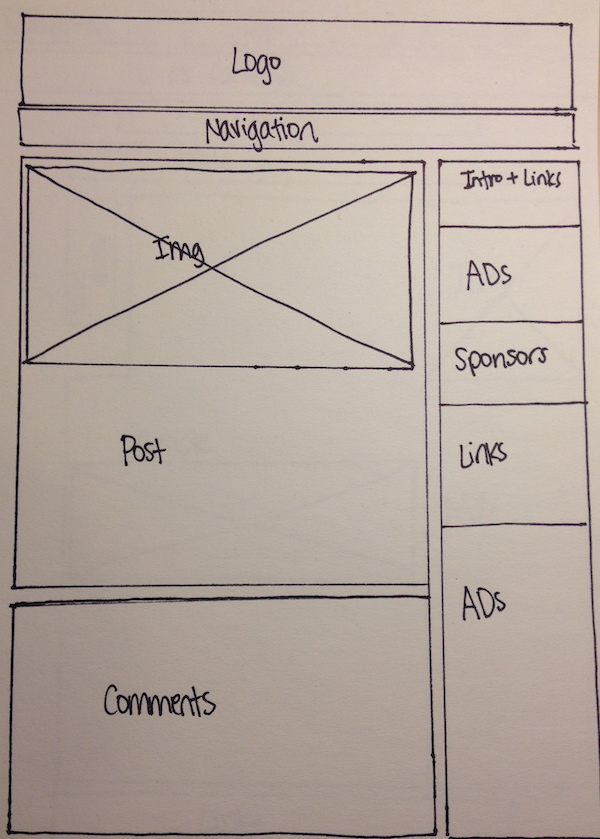 Logo
Navigation
Img
Post
Comments
Intro + Links
ADs
Sponsors
Links
ADs